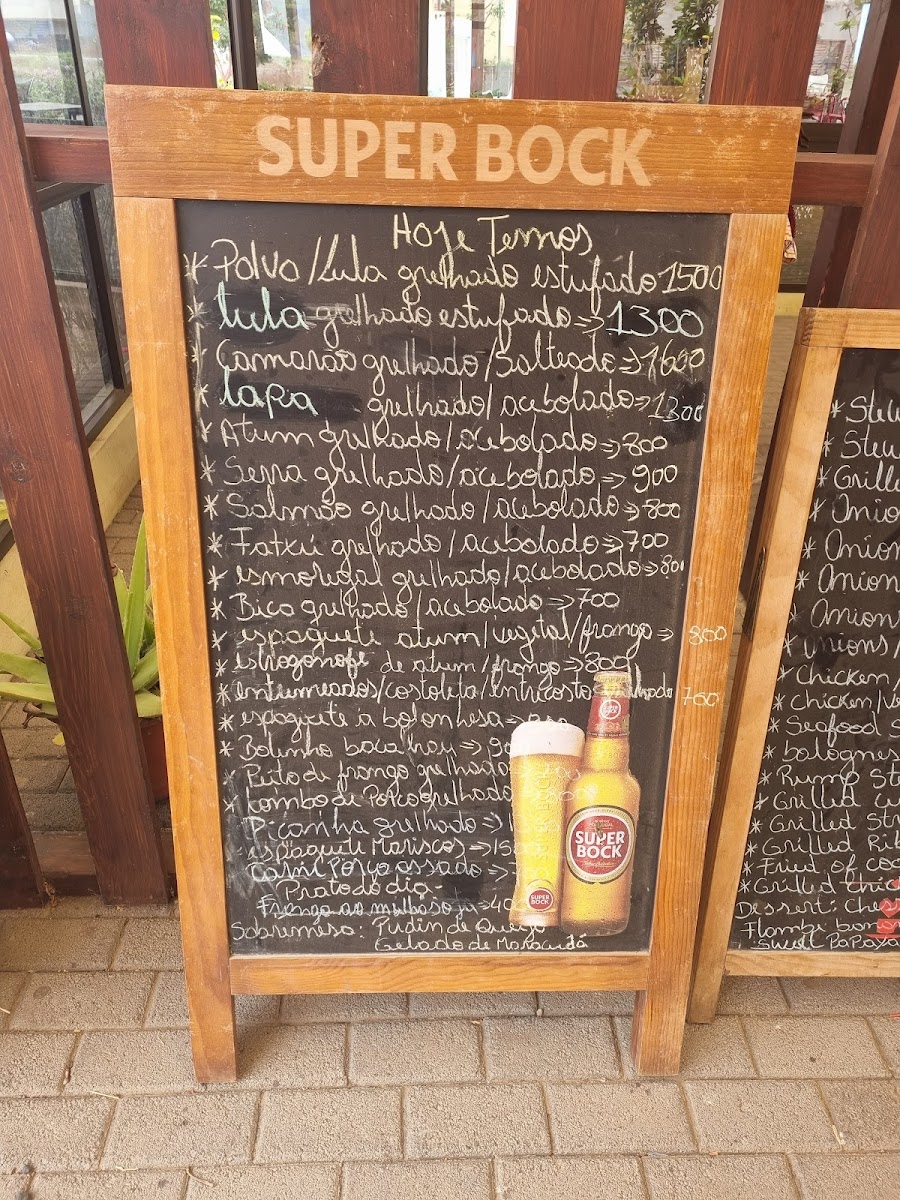 SUPER BOCK
Hoje Temos
* Polvo/Lula grelhado estufado 1500
* lula grelhado estufado => 1300
* Camarão grelhado/Salteado => 1600
* lapa grelhado/acebolado => 1300
* Atum grelhado/acebolado => 800
* Serra grelhado/acebolado => 900
* Salmão grelhado/acebolado => 800
* Fatxú grelhado/acebolado => 700
* esmoregal grelhado/acebolado => 800
* Bica grelhado/acebolado => 700
* espaguete atum/vegetal/frango => 800
* estrogonofe de atum/frango => 800
* entrumeados/costoleta/entrecosto 700
* espaguete à bolonhesa =>
* Bolinho bacalhau =>
* Peito de frango grelhado
* Lombo de Porco grelhado
Picanha grelhado =>
espaguete Mariscos =>
Carne Porco assado =>
Prato do dia
Frango ao molho soja => 40
Sobremesa: Pudin de Queijo
Gelado de Maracujá
SUPER BOCK
SUPER BOCK
* Stew
* Stew
* Grille
* Onio
* Onion
* Onion
* Onion
* Onions/
* Chicken
* Chicken/
* Seafood
* bolognes
* Rump Ste
* Grilled
* Grilled St
* Grilled Ri
* Fried of co
* Grilled Chic
Dessert: Che
Flambé ban
Sweet PaPaya